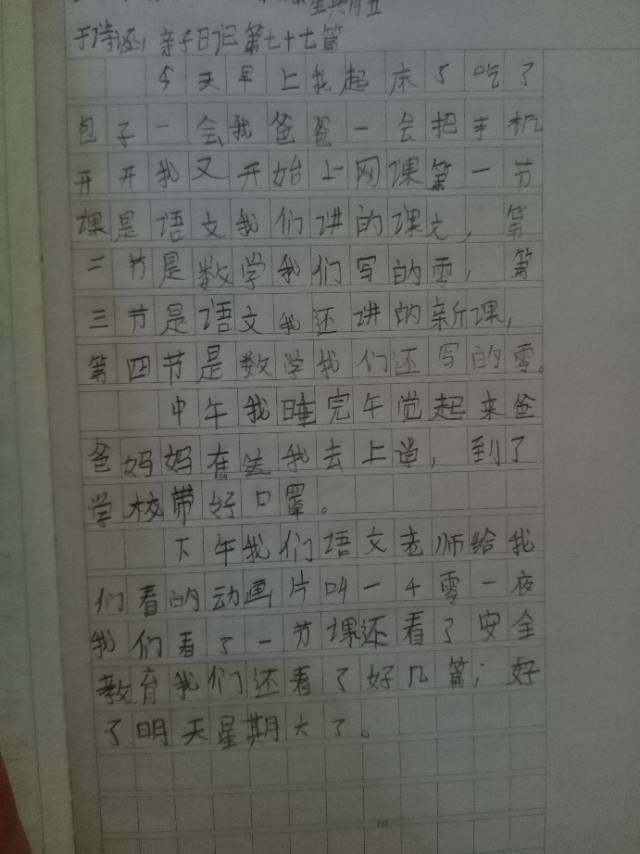 星期五
于诗还，亲子日记第七十七篇
今天早上我起床了吃了
包子一会我爸爸一会把手机
开开我又开始上网课第一节
课是语文我们讲的课文，第
二节是数学我们写的零，第
三节是语文我还讲的新课，
第四节是数学我们还写的零。
中午我睡完午觉起来爸
爸妈妈送我去上学，到了
学校带好口罩。
下午我们语文老师给我
们看的动画片叫一千零一夜
我们看了一节课还看了安全
教育我们还看了好几篇；好
了明天星期六了。